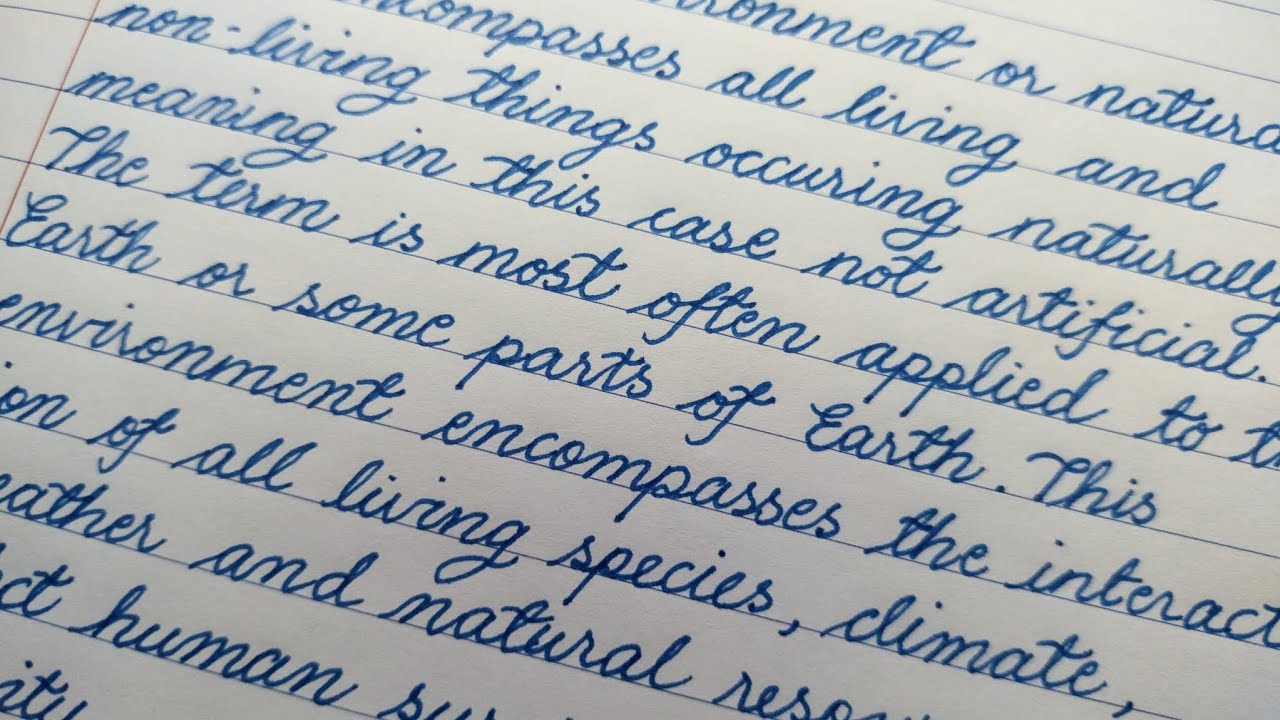 ironment or natura
ncompasses all living and
non-living things occuring naturally
meaning in this case not artificial.
The term is most often applied to th
Earth or some parts of Earth. This
environment encompasses the interact
ion of all living species, climate,
eather and natural reso
ct human sur
ity